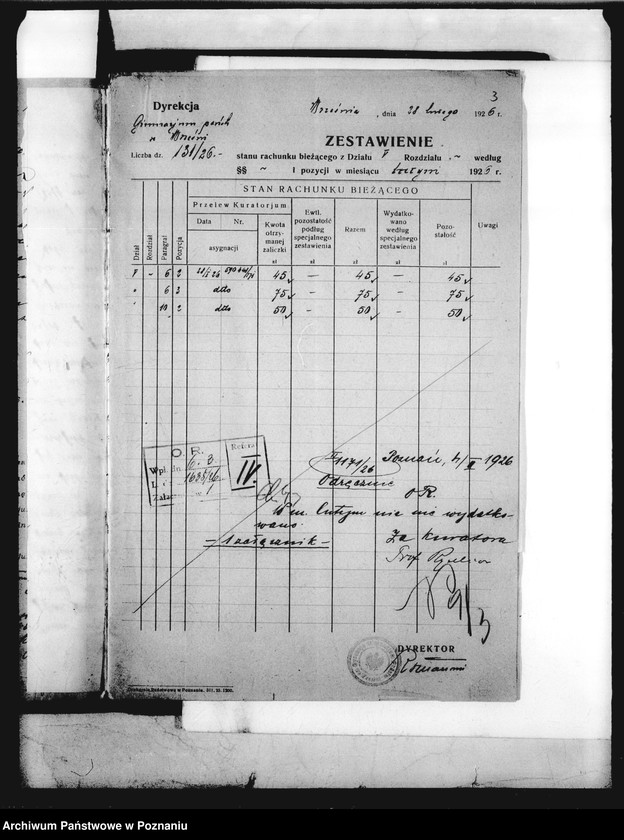 3
Dyrekcja
Gimnazjum państ.
Liczba dz. 131/26.-
Września, dnia 28 lutego 1926 r.
ZESTAWIENIE
stanu rachunku bieżącego z Działu 7 Rozdziału „- według
§§ ~ i pozycji w miesiącu lutym 1926 r.
STAN RACHUNKU BIEŻĄCEGO
Dział
Rozdział
Paragraf
Pozycja
Przelew Kuratorjum
Data Nr.
asygnacji
Kwota otrzymanej zaliczki
zł
Ewtl. pozostałość podług specjalnego zestawienia
Razem
zł
Wydatkowano według specjalnego zestawienia
zł
Pozostałość
zł
Uwagi
7 - 6 2 45 - 45 - 45
" 6 3 dtto 75 - 75 - 75
" 10 2 dtto 50 - 50 - 50
O. R.
Wpł. dn. 6. 3
1635/26
Załącz.
Referat
IV.
1171/26
Odręcznie
Poznań, 4/III 1926
O R.
W m. lutym nie wydatko-
wano
- 1 załącznik -
Za Kuratora
Prof
DYREKTOR
Drukarnia Państwowa w Poznaniu.
Archiwum Państwowe w Poznaniu